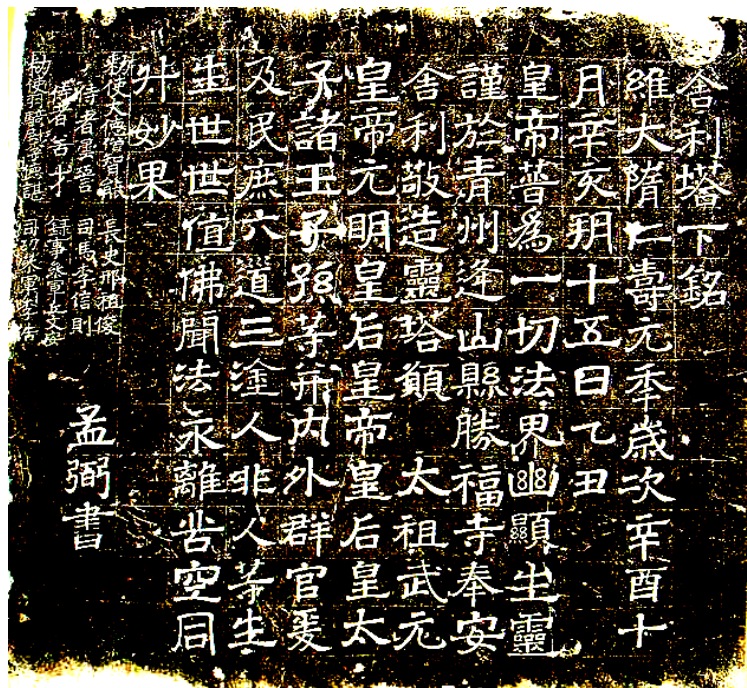 舍利塔下銘
維大隋仁壽元年歲次辛酉十
月辛亥朔十五日乙丑
皇帝普為一切法界幽顯生靈
謹於青州逢山縣勝福寺奉安
舍利敬造靈塔願 太祖武元
皇帝元明皇后皇帝皇后皇太
子諸王子孫等并內外群官爰
及民庶六道三塗人非人等生
生世世值佛聞法永離苦空同
升妙果
勅使大德僧智能
長史邢祖俊
侍者曇䛒
司馬李信則
侍者善才
錄事參軍丘文安
勅使羽騎尉李德諶
司功參軍李佶
孟弼書